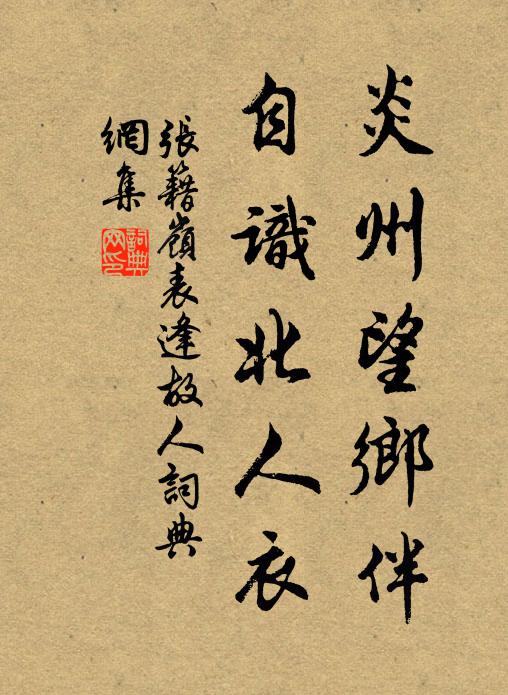 炎州望鄉伴
自識北人衣
張籍嶺表逢故人詞典
網集
詞典
网印